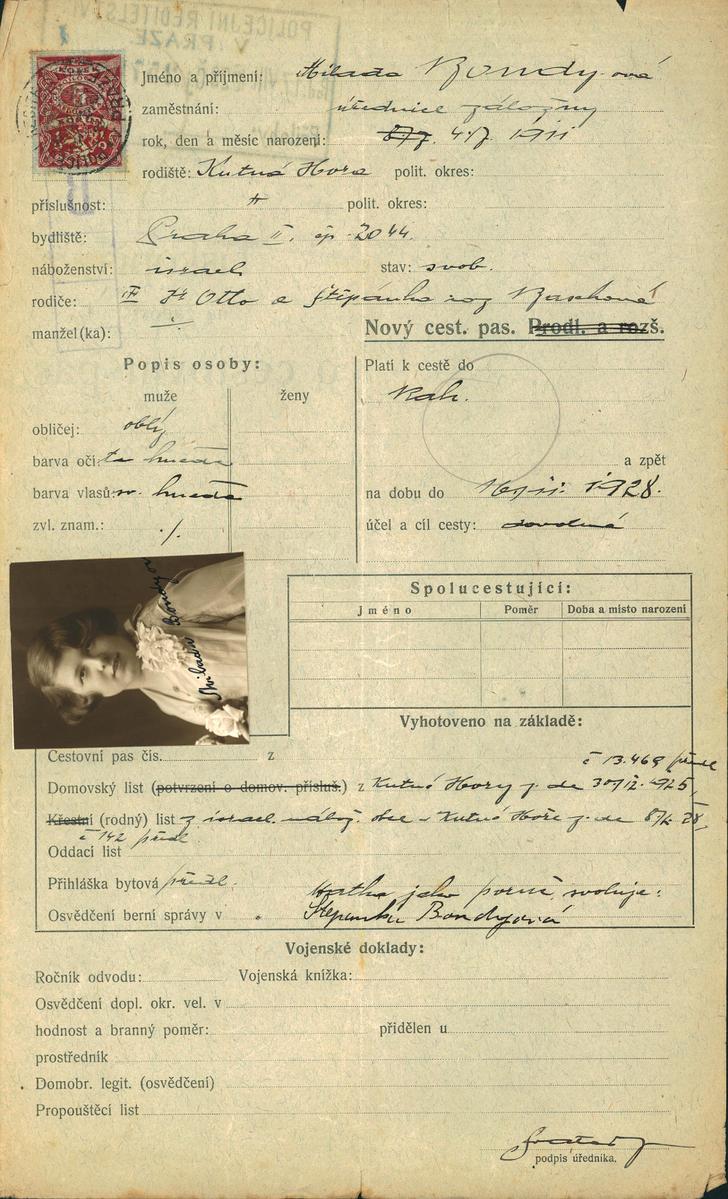 POLICEJNÍ ŘEDITELSTVÍ
V PRAZE
Jméno a příjmení: Milada Bondy-ová
zaměstnání: úřednice záložny
rok, den a měsíc narození: 4./7. 1911
rodiště: Kutná Hora polit. okres:
příslušnost: " polit. okres:
bydliště: Praha II. čp. 2044.
náboženství: israel. stav: svob.
rodiče: Otto a Štěpánka roz
manžel(ka): ./.
Nový cest. pas. Prodl. a rozš.
Popis osoby:
muže ženy
Platí k cestě do
obličej: oblý
barva očí: hnědá
a zpět
barva vlasů: hnědá
na dobu do 1928.
zvl. znam.: ./.
účel a cíl cesty:
Milada Bondyová
Spolucestující:
Jméno Poměr Doba a místo narození
Vyhotoveno na základě:
Cestovní pas čís. z
č 13.469 předl
Domovský list (potvrzení o domov. přísluš.) z Kutné Hory z de 1925,
Křestní (rodný) list z israel. nábož. obce v Kutné Hoře z de
č 142 předl.
Oddací list
Přihláška bytová předl.
Matka jako svoluje:
Osvědčení berní správy v Štěpánka Bondyová
Vojenské doklady:
Ročník odvodu: Vojenská knížka:
Osvědčení dopl. okr. vel. v
hodnost a branný poměr: přidělen u
prostředník
Domobr. legit. (osvědčení)
Propouštěcí list
podpis úředníka.